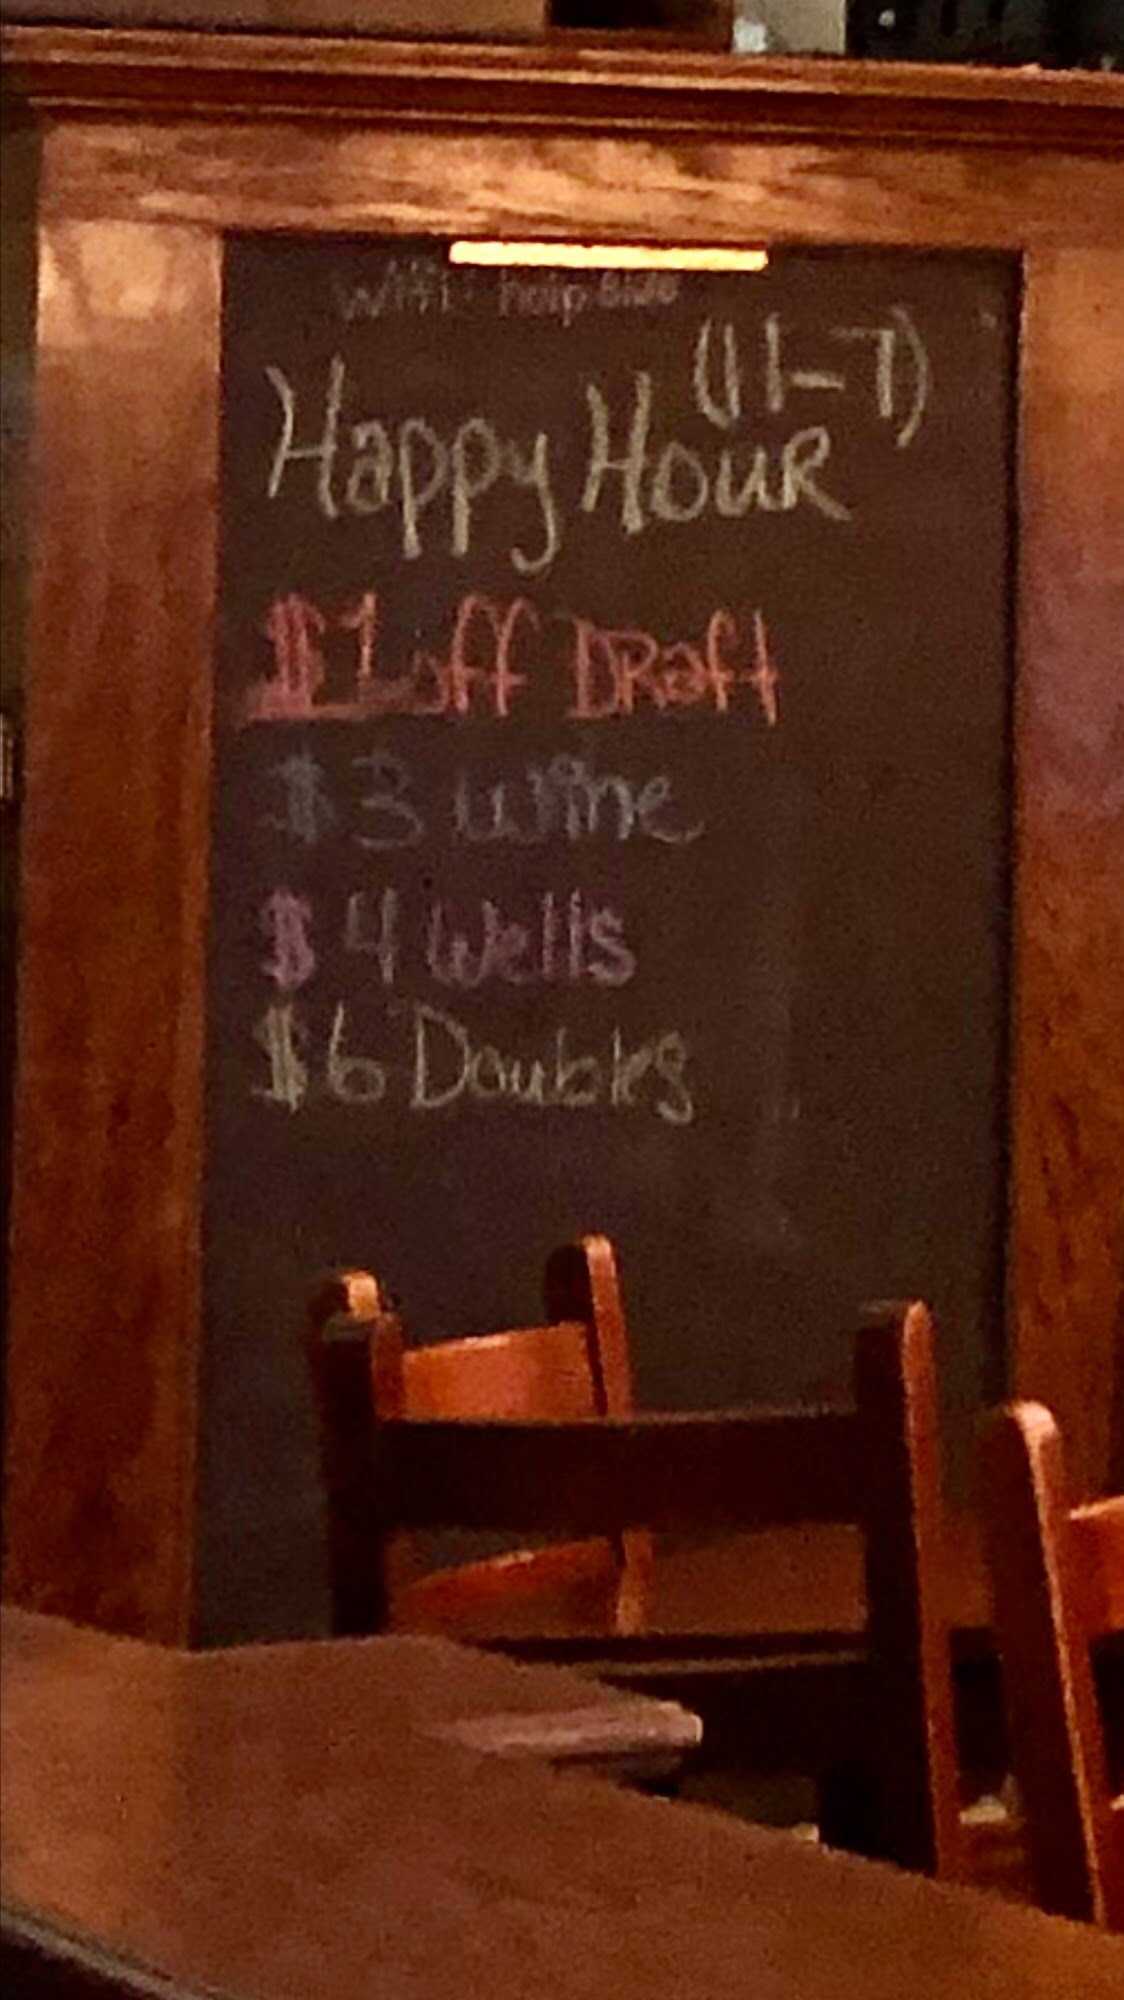 Wifi:
(11-7)
Happy Hour
$1 off Draft
$3 wine
$4 Wells
$6 Doubles